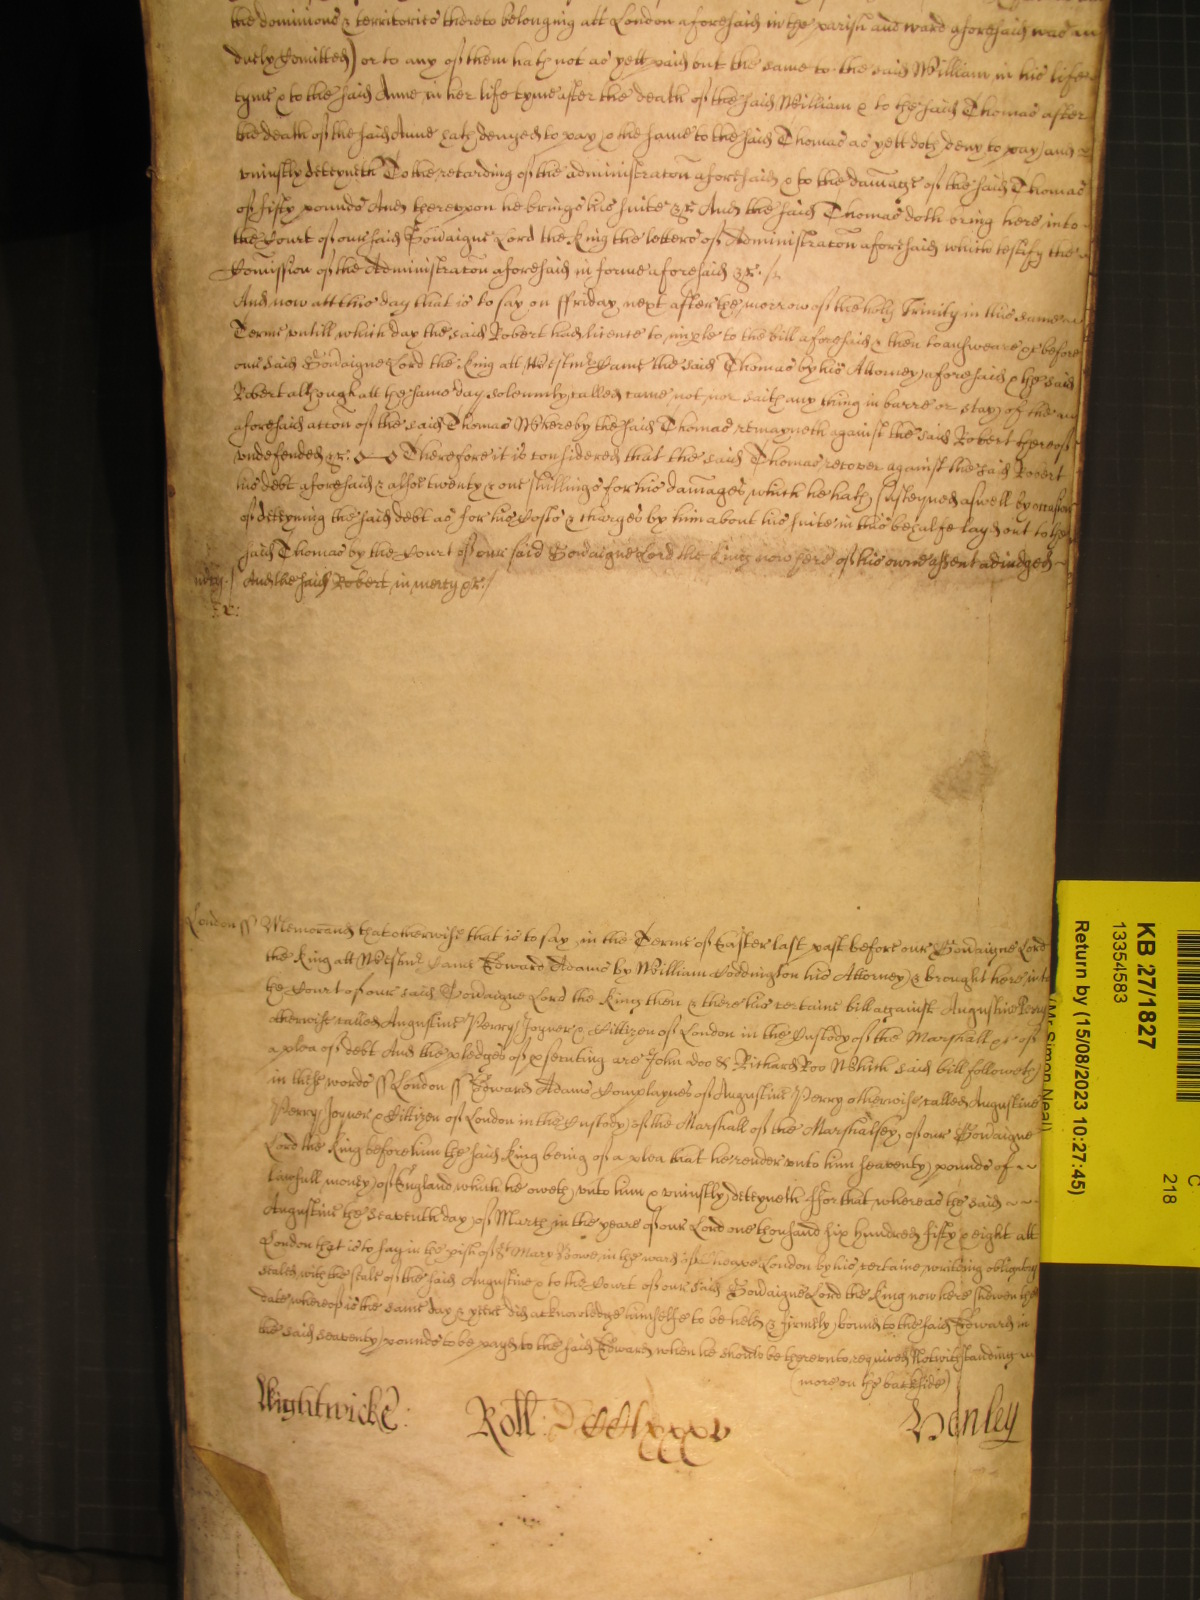 the dominions & territories thereto belonging att London aforesaid in the parish and ward aforesaid was
duely Comitted) or to any of them hath not as yett paid but the same to the said William in his life
tyme & to the said Anne in her life tyme after the death of the said William & to the said Thomas after
the death of the said Anne hath denyed to pay & the same to the said Thomas as yett doth deny to pay and
uniustly deteyneth To the retarding of the administracon aforesaid & to the damage of the said Thomas
of fifty pounds And thereupon he brings his suite &c And the said Thomas doth bring here into
the Court of our said Soveraigne Lord the King the letters of Administracon aforesaid which testify the
Comission of the Administracon aforesaid in forme aforesaid &c /
And now att this day that is to say on ffriday next after the morrow of the holly Trinity in this same
Terme untill which day the said Robert had licence to imple to the bill aforesaid & then to answeare &c before
our said Soveraigne Lord the King att Westmr Came the said Thomas by his Attorney aforesaid & the said
Robert although att the same day solemnly called came not nor saith any thing in barre or stay of the
aforesaid accon of the said Thomas Whereby the said Thomas remayneth against the said Robert thereof
undefended &c Therefore it is considered that the said Thomas recover against the said Robert
his debt aforesaid & alsoe twenty & one shillings for his damages which he hath susteyned aswell by occasion
of deteyning the said debt as for his Costs & charges by him about his suite in this behalfe layd out to the
said Thomas by the Court of our said Soveraigne Lord the King now here of his owne assent adiudged
mcy / And the said Robert in mercy &c /
London ss Memorand that otherwise that is to say in the Terme of Easter last past before our Soveraigne Lord
the King att Westmr Came Edward Adams by William Coddington his Attorney & brought here into
the Court of our said Soveraigne Lord the King then & there his certaine bill against Augustine Perry
otherwise called Augustine Perry Joyner & Cittizen of London in the Custody of the Marshall &c of
a plea of debt And the pledges of prosecuting are John Doo & Richard Roo Which said bill followeth
in these words ss London ss Edward Adams Complaynes of Augustine Perry otherwise called Augustine
Perry Joyner & Cittizen of London in the Custody of the Marshall of the Marshalsey of our Soveraigne
Lord the King before him the said King being of a plea that he render unto him seaventy pounds of
lawfull money of England which he oweth unto him & uniustly deteyneth ffor that whereas the said
Augustine the seaventh day of March in the yeare of our Lord one thousand six hundred fifty & eight att
London that is to say in the pish of St Mary Bowe in the ward of Cheape London by his certaine writeing obligatory
sealed with the seale of the said Augustine & to the Court of our said Soveraigne Lord the King now here shewen the
date whereof is the same day & yeare did acknowledge himselfe to be held & firmely bound to the said Edward in
the said seaventy pounds to be payd to the said Edward when he should be thereunto required Notwithstanding
(more on the backside)
Wightwicke: Roll: DCClxxxv Henley
KB 27/1827
13354583
Return by (15/08/2023 10:27:45)
(Mr Simon Neal)
C
218